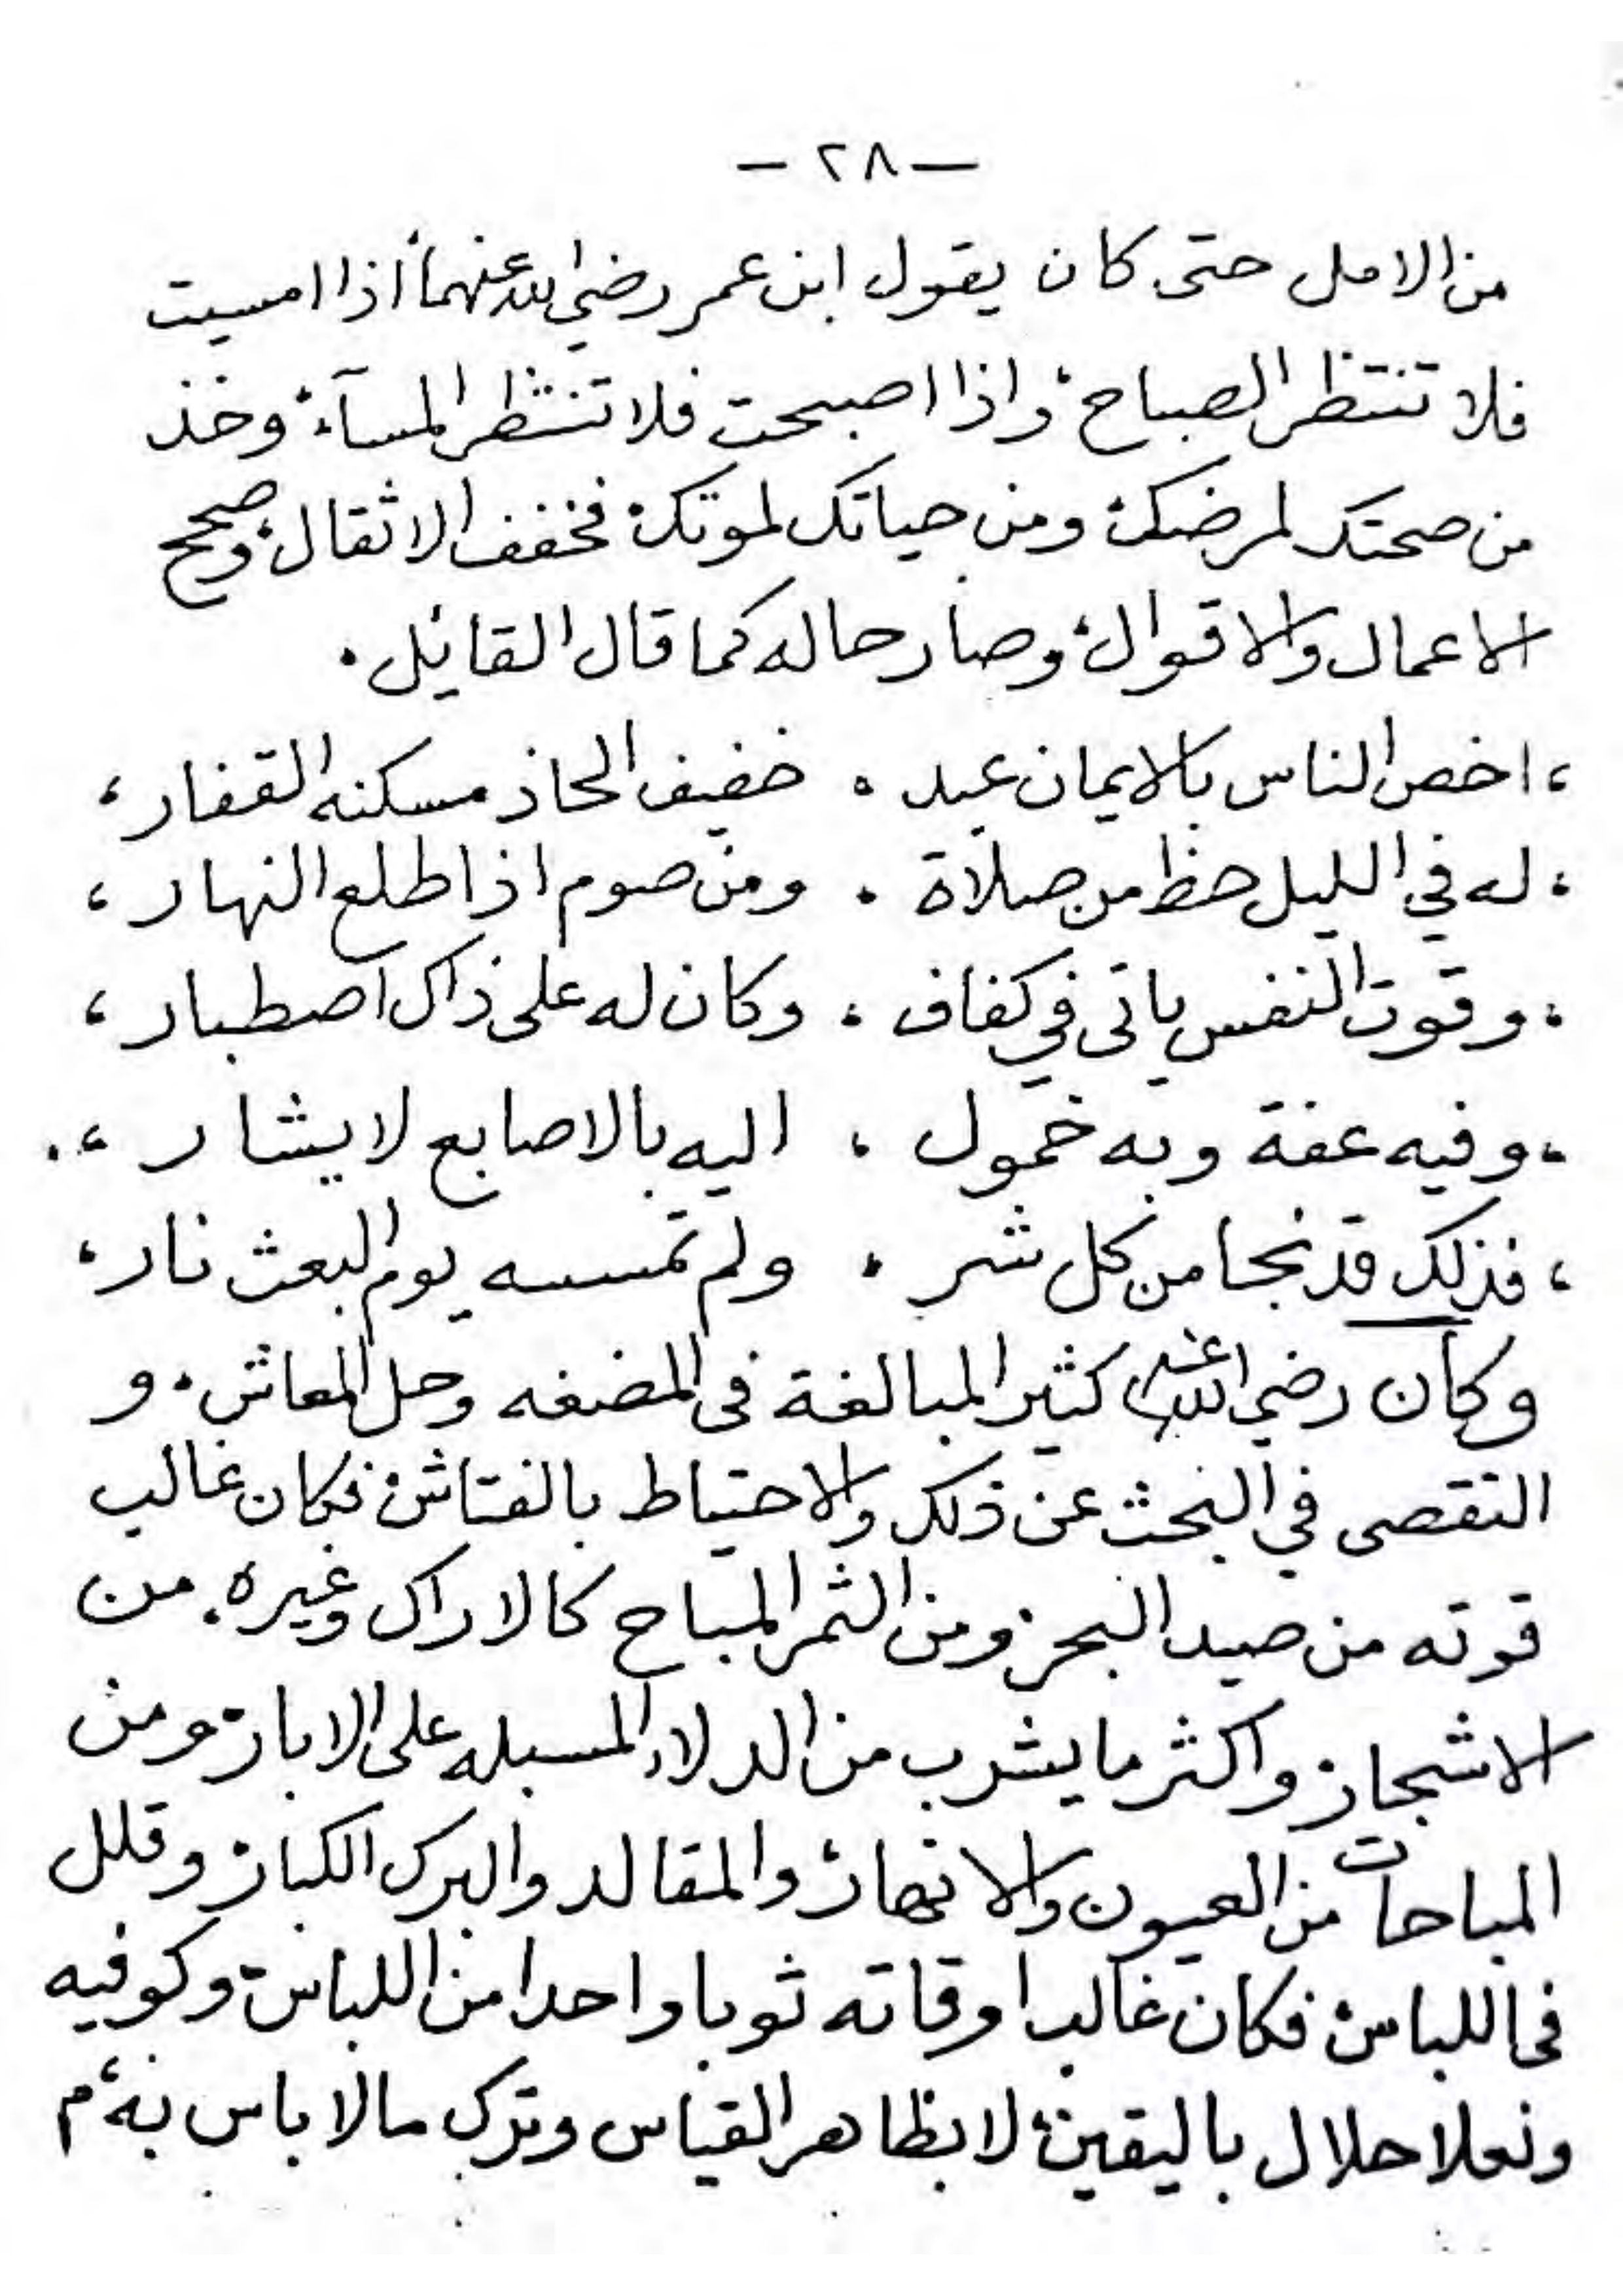 — ٢٨ —
من الامل حتى كان يقول ابن عمر رضي الله عنهما، اذا امسيت
فلا تنتظر الصباح، واذا اصبحت فلا تنتظر المسآء، وخذ
من صحتك لمرضك، ومن حياتك لموتك، فخفف الاثقال، وصحح
الاعمال والاقوال، وصار حاله كما قال القايل .
، اخص الناس بالايمان عبد . خفيف الحاذ مسكنه القفار ،
، له في الليل حظ من صلاة . ومن صوم اذا طلع النهار ،
، وقوت النفس ياتى في كفاف ، وكان له على ذاك اصطبار ،
، وفيه عفة وبه خمول ، اليه بالاصابع لا يشار ، .
، فذلك قد نجا من كل شر . ولم تمسسه يوم البعث نار ،
وكان رضي الله عنه كثير المبالغة فى المضغه وحل المعاش ، و
التقصى في البحث عن ذلك والاحتياط بالفتاش، فكان غالب
قوته من صيد البحر، ومن الثمر المباح كالاراك وغيره . من
الاشجار، واكثر ما يشرب من الدلاء المسبله على الابار، ومن
المباحات من العيون والانهار، والمقالد والبرك الكبار، وقلل
فى اللباس، فكان غالب اوقاته ثوبا واحدا من اللباس، وكوفيه
ونعلا حلال باليقين، لا بظاهر القياس وترك مالا باس به، م